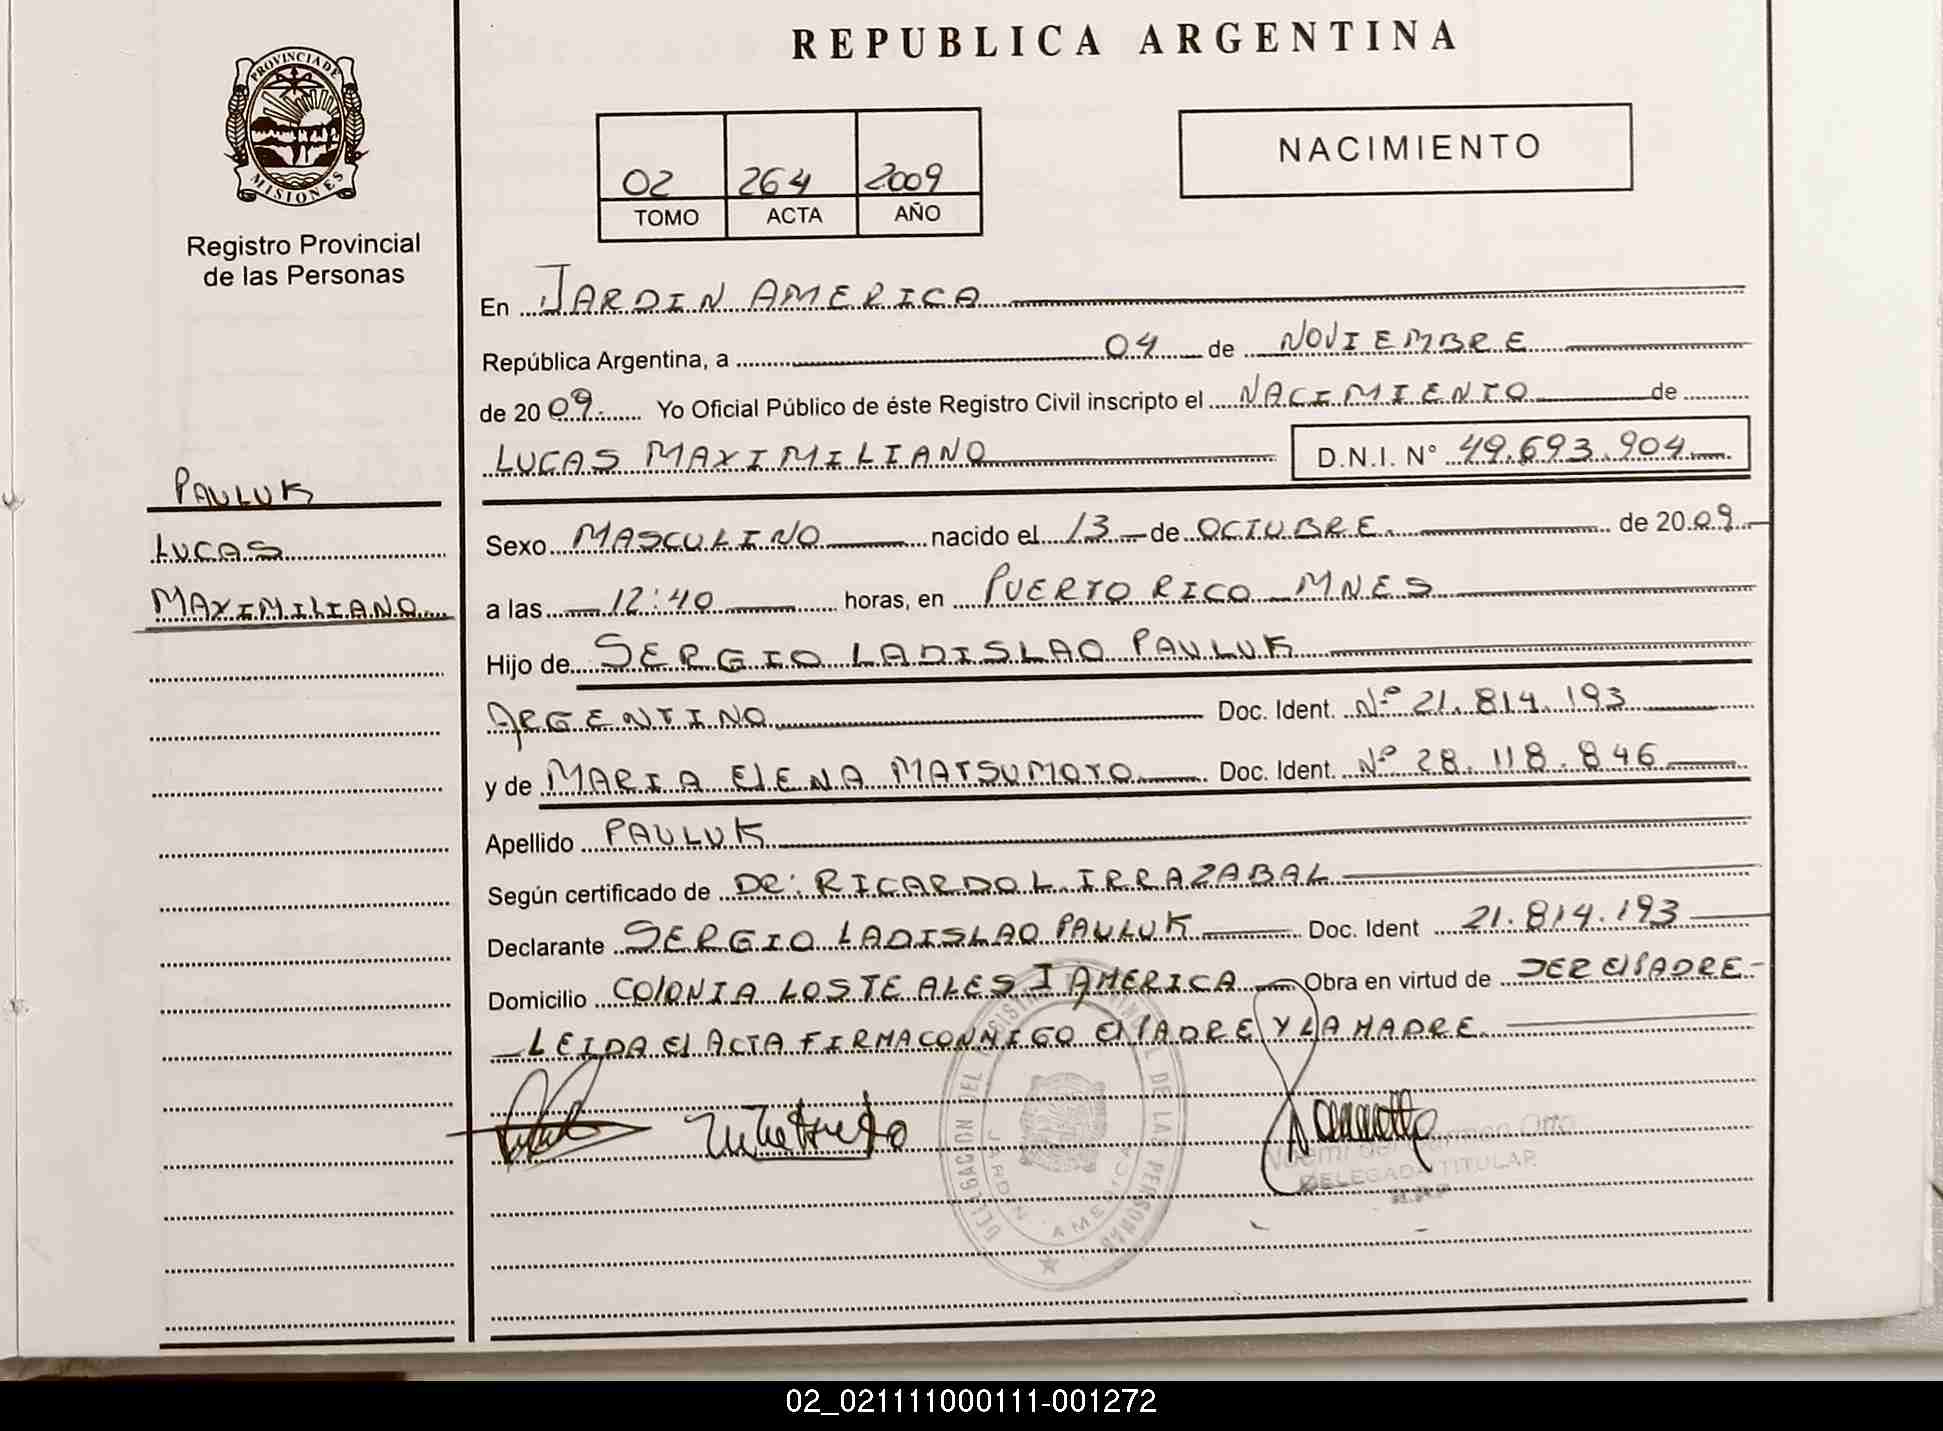 REPUBLICA ARGENTINA
PROVINCIA DE
MISIONES
Registro Provincial
de las Personas
02 264 2009
TOMO ACTA AÑO
NACIMIENTO
En JARDIN AMERICA
República Argentina, a 04 de NOVIEMBRE
de 2009 Yo Oficial Público de éste Registro Civil inscripto el NACIMIENTO de
LUCAS MAXIMILIANO D.N.I. N° 49.693.904
PAULUK
LUCAS
MAXIMILIANO
Sexo MASCULINO nacido el 13 de OCTUBRE de 2009
a las 12:40 horas, en PUERTO RICO MNES
Hijo de SERGIO LADISLAO PAULUK
ARGENTINO Doc. Ident. Nº 21.814.193
y de MARIA ELENA MATSUMOTO Doc. Ident. Nº 28.118.846
Apellido PAULUK
Según certificado de DR: RICARDO L. IRRAZABAL
Declarante SERGIO LADISLAO PAULUK Doc. Ident 21.814.193
Domicilio COLONIA LOS TEALES J AMERICA Obra en virtud de SER El PADRE
LEIDA El ACTA FIRMA CONMIGO El PADRE Y LA MADRE.
DELEGACION DEL REGISTRO PROVINCIAL DE LAS PERSONAS
JARDIN AMERICA
Noemi del Carmen Otto
DELEGADA TITULAR
R.P.P
02_021111000111-001272